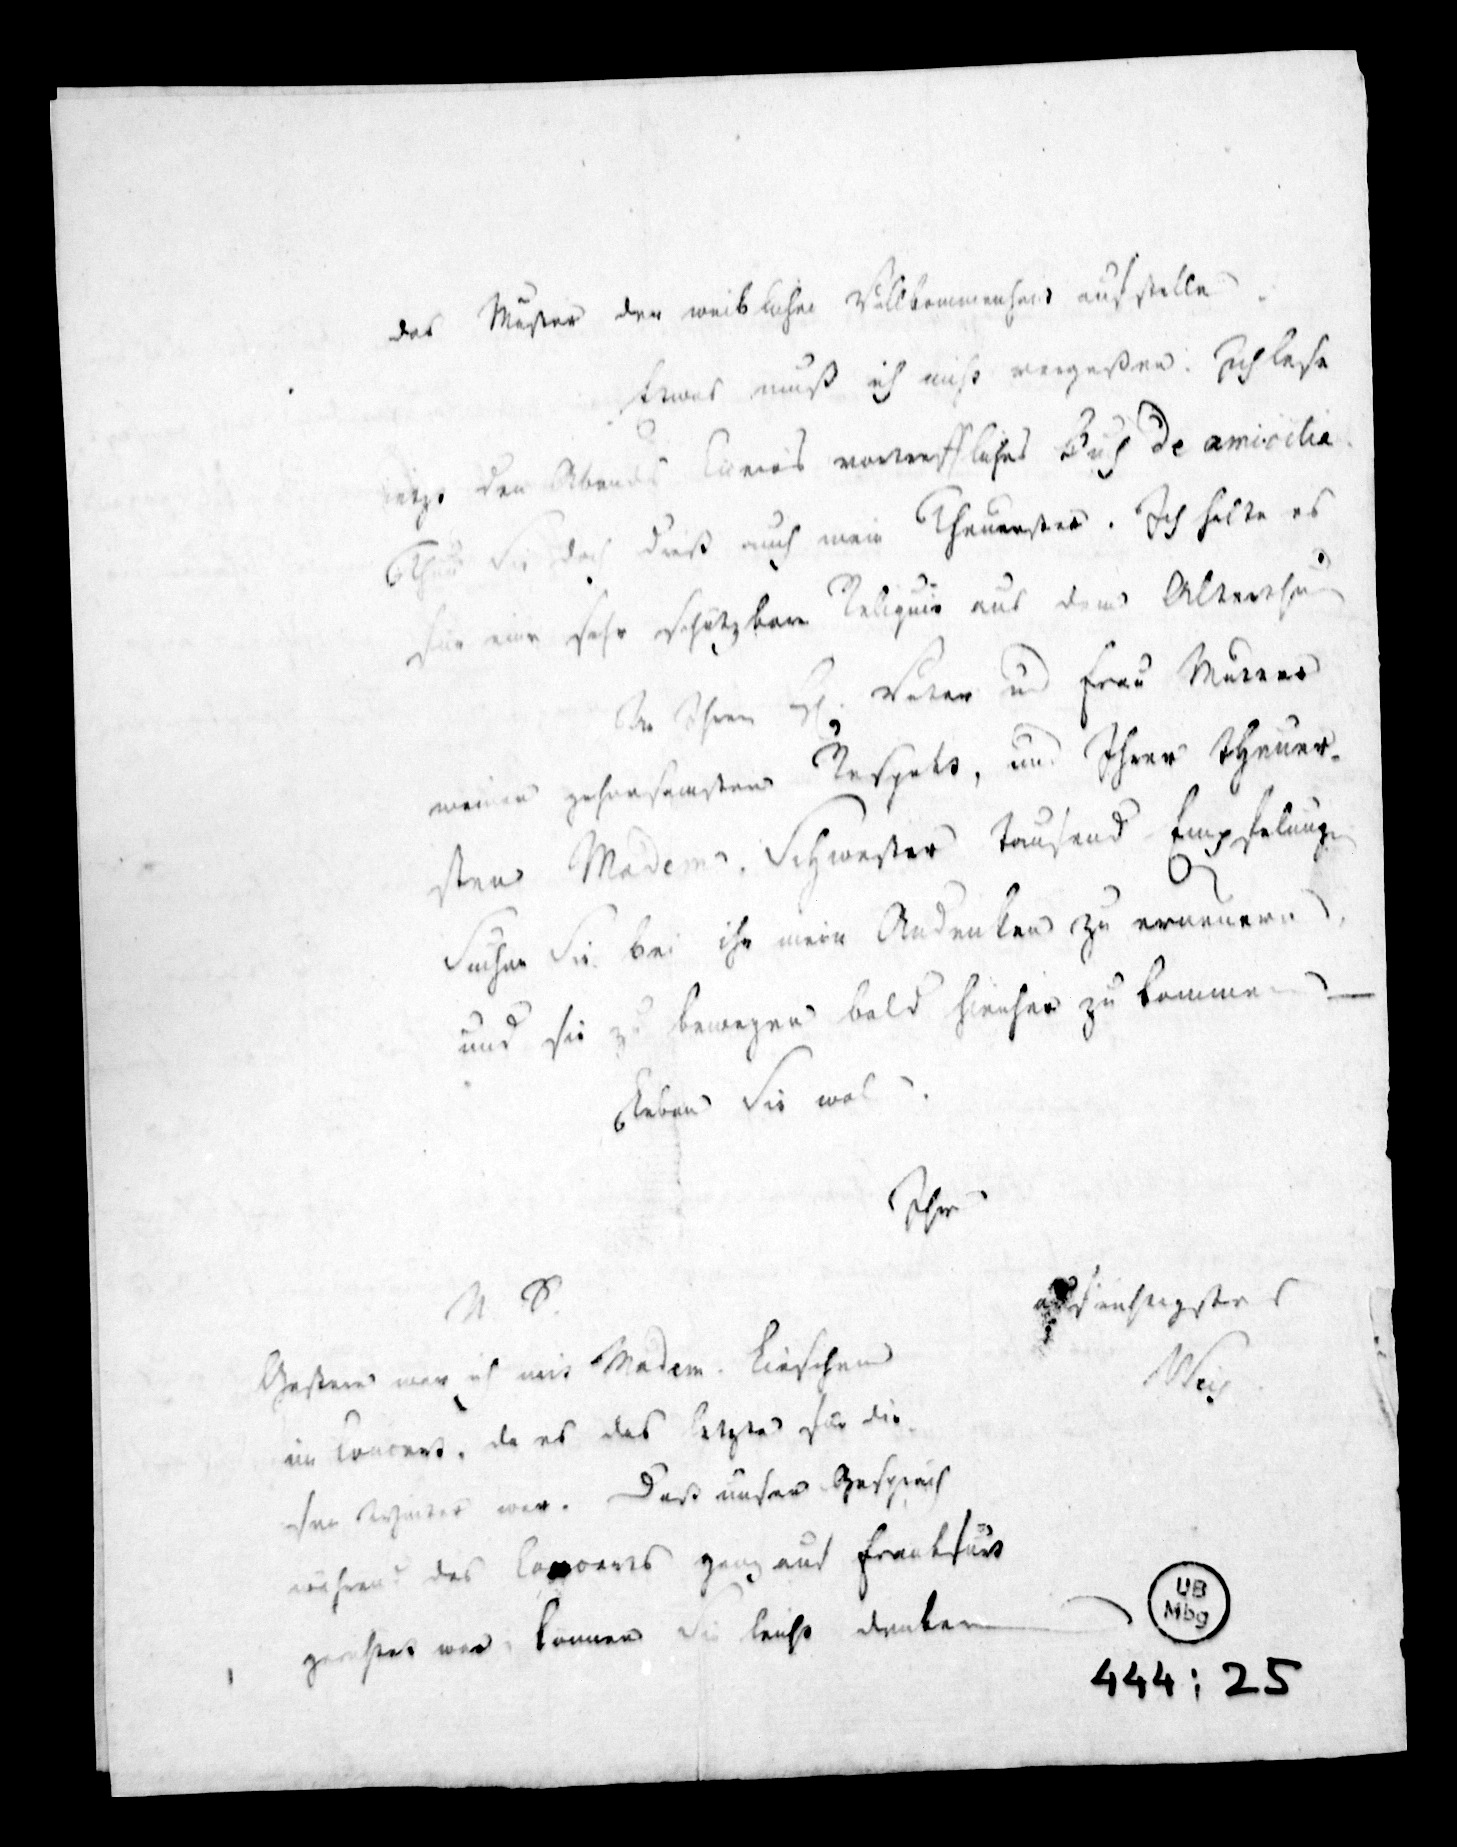 das Muster der weiblichen Vollkommenheit aufstelle.
Etwas muß ich nicht vergeßen. Ich lese
jetzt den Abends Ciceros vortrefflichs Buch De amicitia.
Thun Sie doch dieß auch mein Theuerster. Ich halte es
für eine sehr schätzbare Reliquie aus dem Alterthum
Ihren Vater und Frau Mutter
meinen gehorsamsten Respekt, und Ihrer theuer-
sten Madem. Schwester tausend Empfelungen
Suchen Sie bei ihr mein Andenken zu erneuern,
und sie zu bewegen bald hierher zu kommen —
Leben Sie wol.
Ihr
aufrichtigster
Weis
N S.
Gestern war ich mit Madem. Lieschen
im Concert, da es das letzte für die-
sen Winter war. Daß unser Gespräch
während des Concerts ganz auf Frankfurt
gerichtet war, können Sie leicht denken
UB
Mbg
444: 25